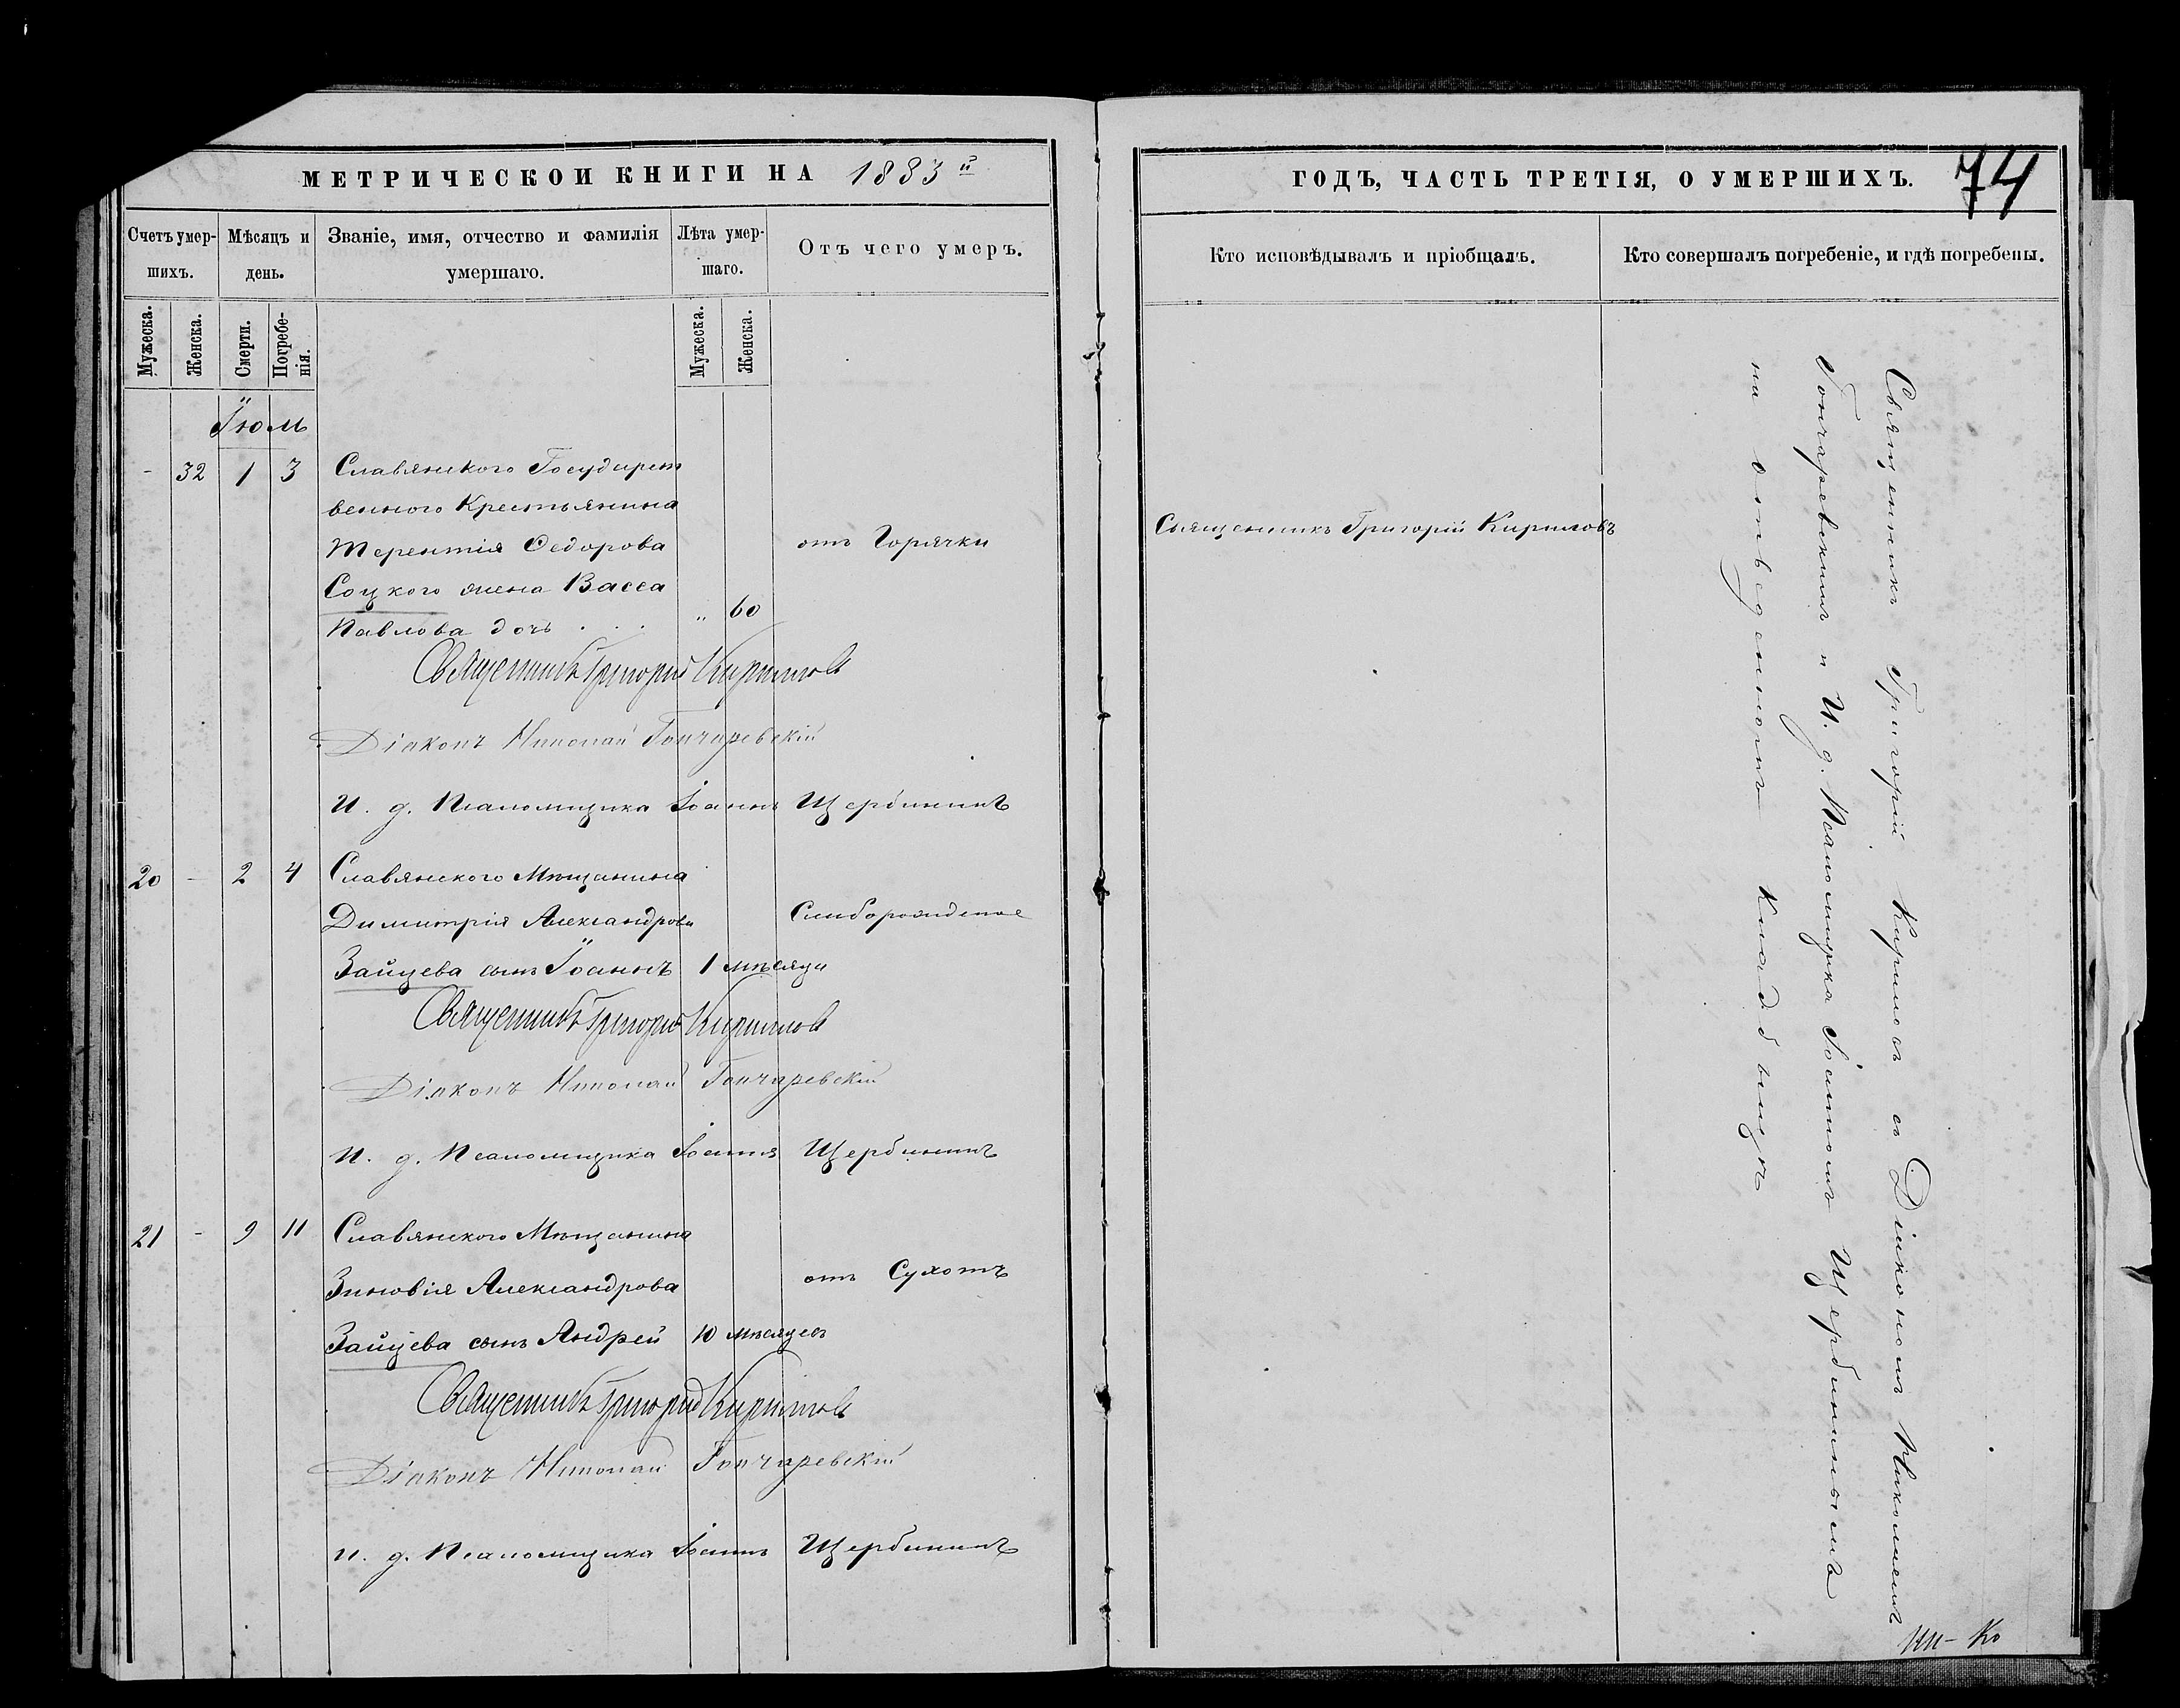 МЕТРИЧЕСКОЙ КНИГИ НА 1883 й
Счетъ умер-
шихъ.
Мѣсяцъ и
день.
Званіе, имя, отчество и фамилія
умершаго.
Лѣта умер-
шаго.
Отъ чего умеръ.
Мужеска.
Женска.
Смерти.
Погребе-
нія.
Мужеска.
Женска.
Іюль
- 32 1 3 Славянского Государст
венного Крестьянина
Терентія Федорова
отъ Горячки
Соцкого жена Васса
Павлова дочь . . . „ 60
Священникъ Григорій Кириловъ
Діаконъ Николай Гончаревскій
И. д. Псаломщика Іоаннъ Щербининъ
20 - 2 4 Славянского Мѣщанина
Димитрія Александрова
Слаборожденіе
Зайцева сынъ Іоаннъ 1 мѣсяца
Священникъ Григорій Кириловъ
Діаконъ Николай Гончаревскій
И. д. Псаломщика Іоаннъ Щербининъ
21 - 9 11 Славянского Мѣщанина
Зиновія Александрова
отъ Сухотъ
Зайцева сынъ Андрей 10 мѣсяцевъ
Священникъ Григорій Кириловъ
Діаконъ Николай Гончаревскій
И. д. Псаломщика Іоаннъ Щербининъ
ГОДЪ, ЧАСТЬ ТРЕТІЯ, О УМЕРШИХЪ.
74
Кто исповѣдывалъ и пріобщалъ.
Кто совершалъ погребеніе, и гдѣ погребены.
Священникъ Григорій Кириловъ
Священникъ Григорій Кириловъ съ Діакономъ Николаемъ
Гончаревскимъ и И. д. Псаломщика Іоанномъ Щербининымъ
на отведенномъ Кладбищѣ